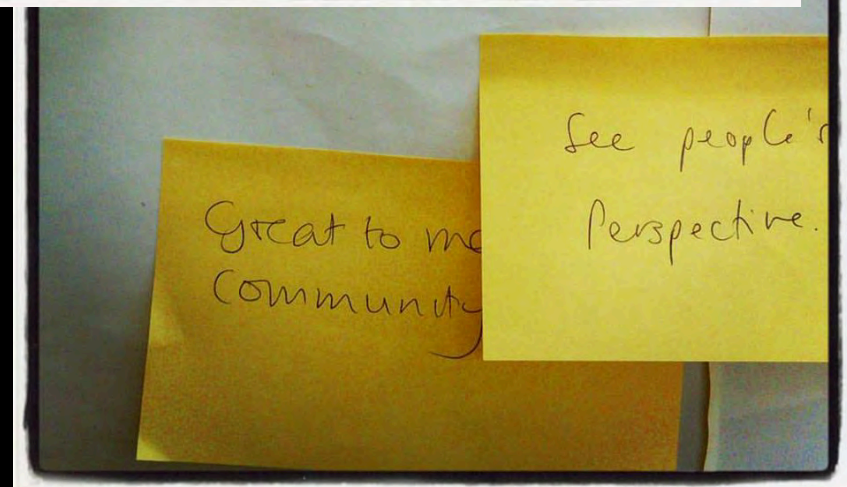 Great to
Community
See people's
Perspective.